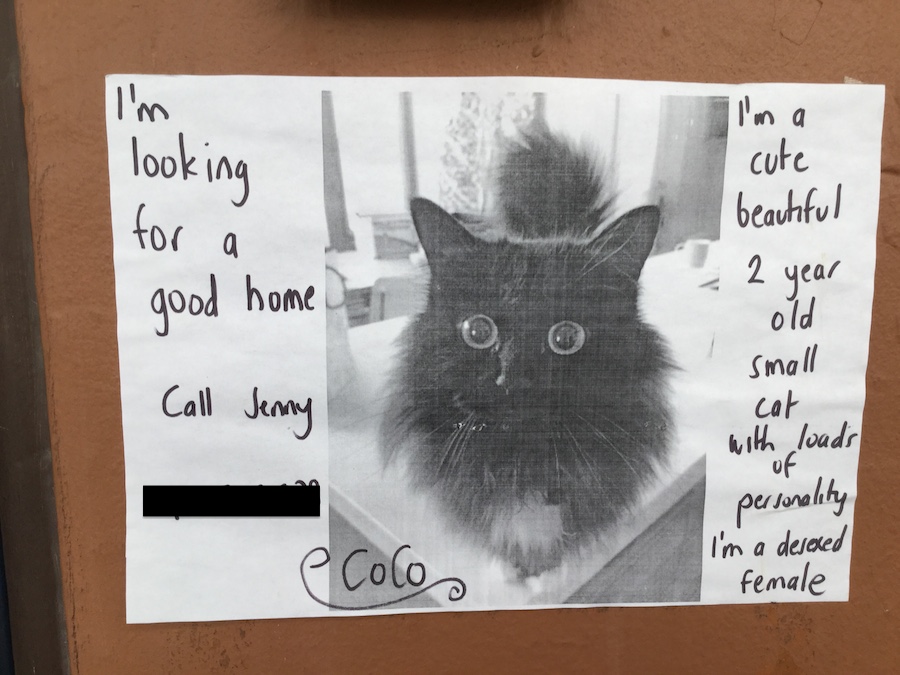 I'm
looking
for a
good home
Call Jenny
CoCo
I'm a
cute
beautiful
2 year
old
small
cat
with loads
of
personality
I'm a desexed
female